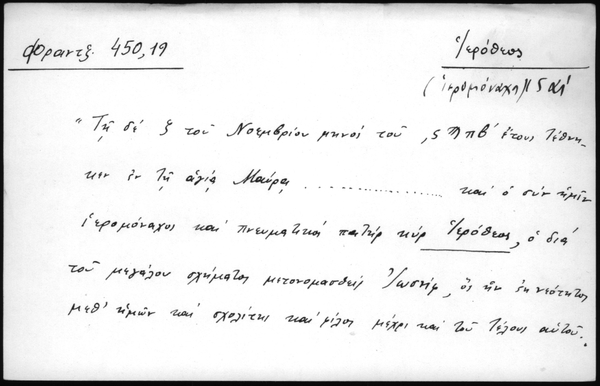 Φραντζ. 450,19
Ἱερόθεος
(ἱερομόναχος)
"Τῇ δέ ξ τοῦ Νοεμβρίου μηνός τοῦ ͵ςϠπβ' ἔτους τέθνη-
κεν ἐν τῇ ἁγίᾳ Μαύρᾳ .................. καί ὁ σύν ἡμῖν
ἱερομόναχος καί πνευματικός πατήρ κύρ Ἱερόθεος, ὁ διά
τοῦ μεγάλου σχήματος μετονομασθείς Ἰωσήφ, ὅς ἦν ἐκ νεότητος
μεθ' ἡμῶν καί σχολίτης καί φίλος μέχρι καί τοῦ τέλους αὐτοῦ.